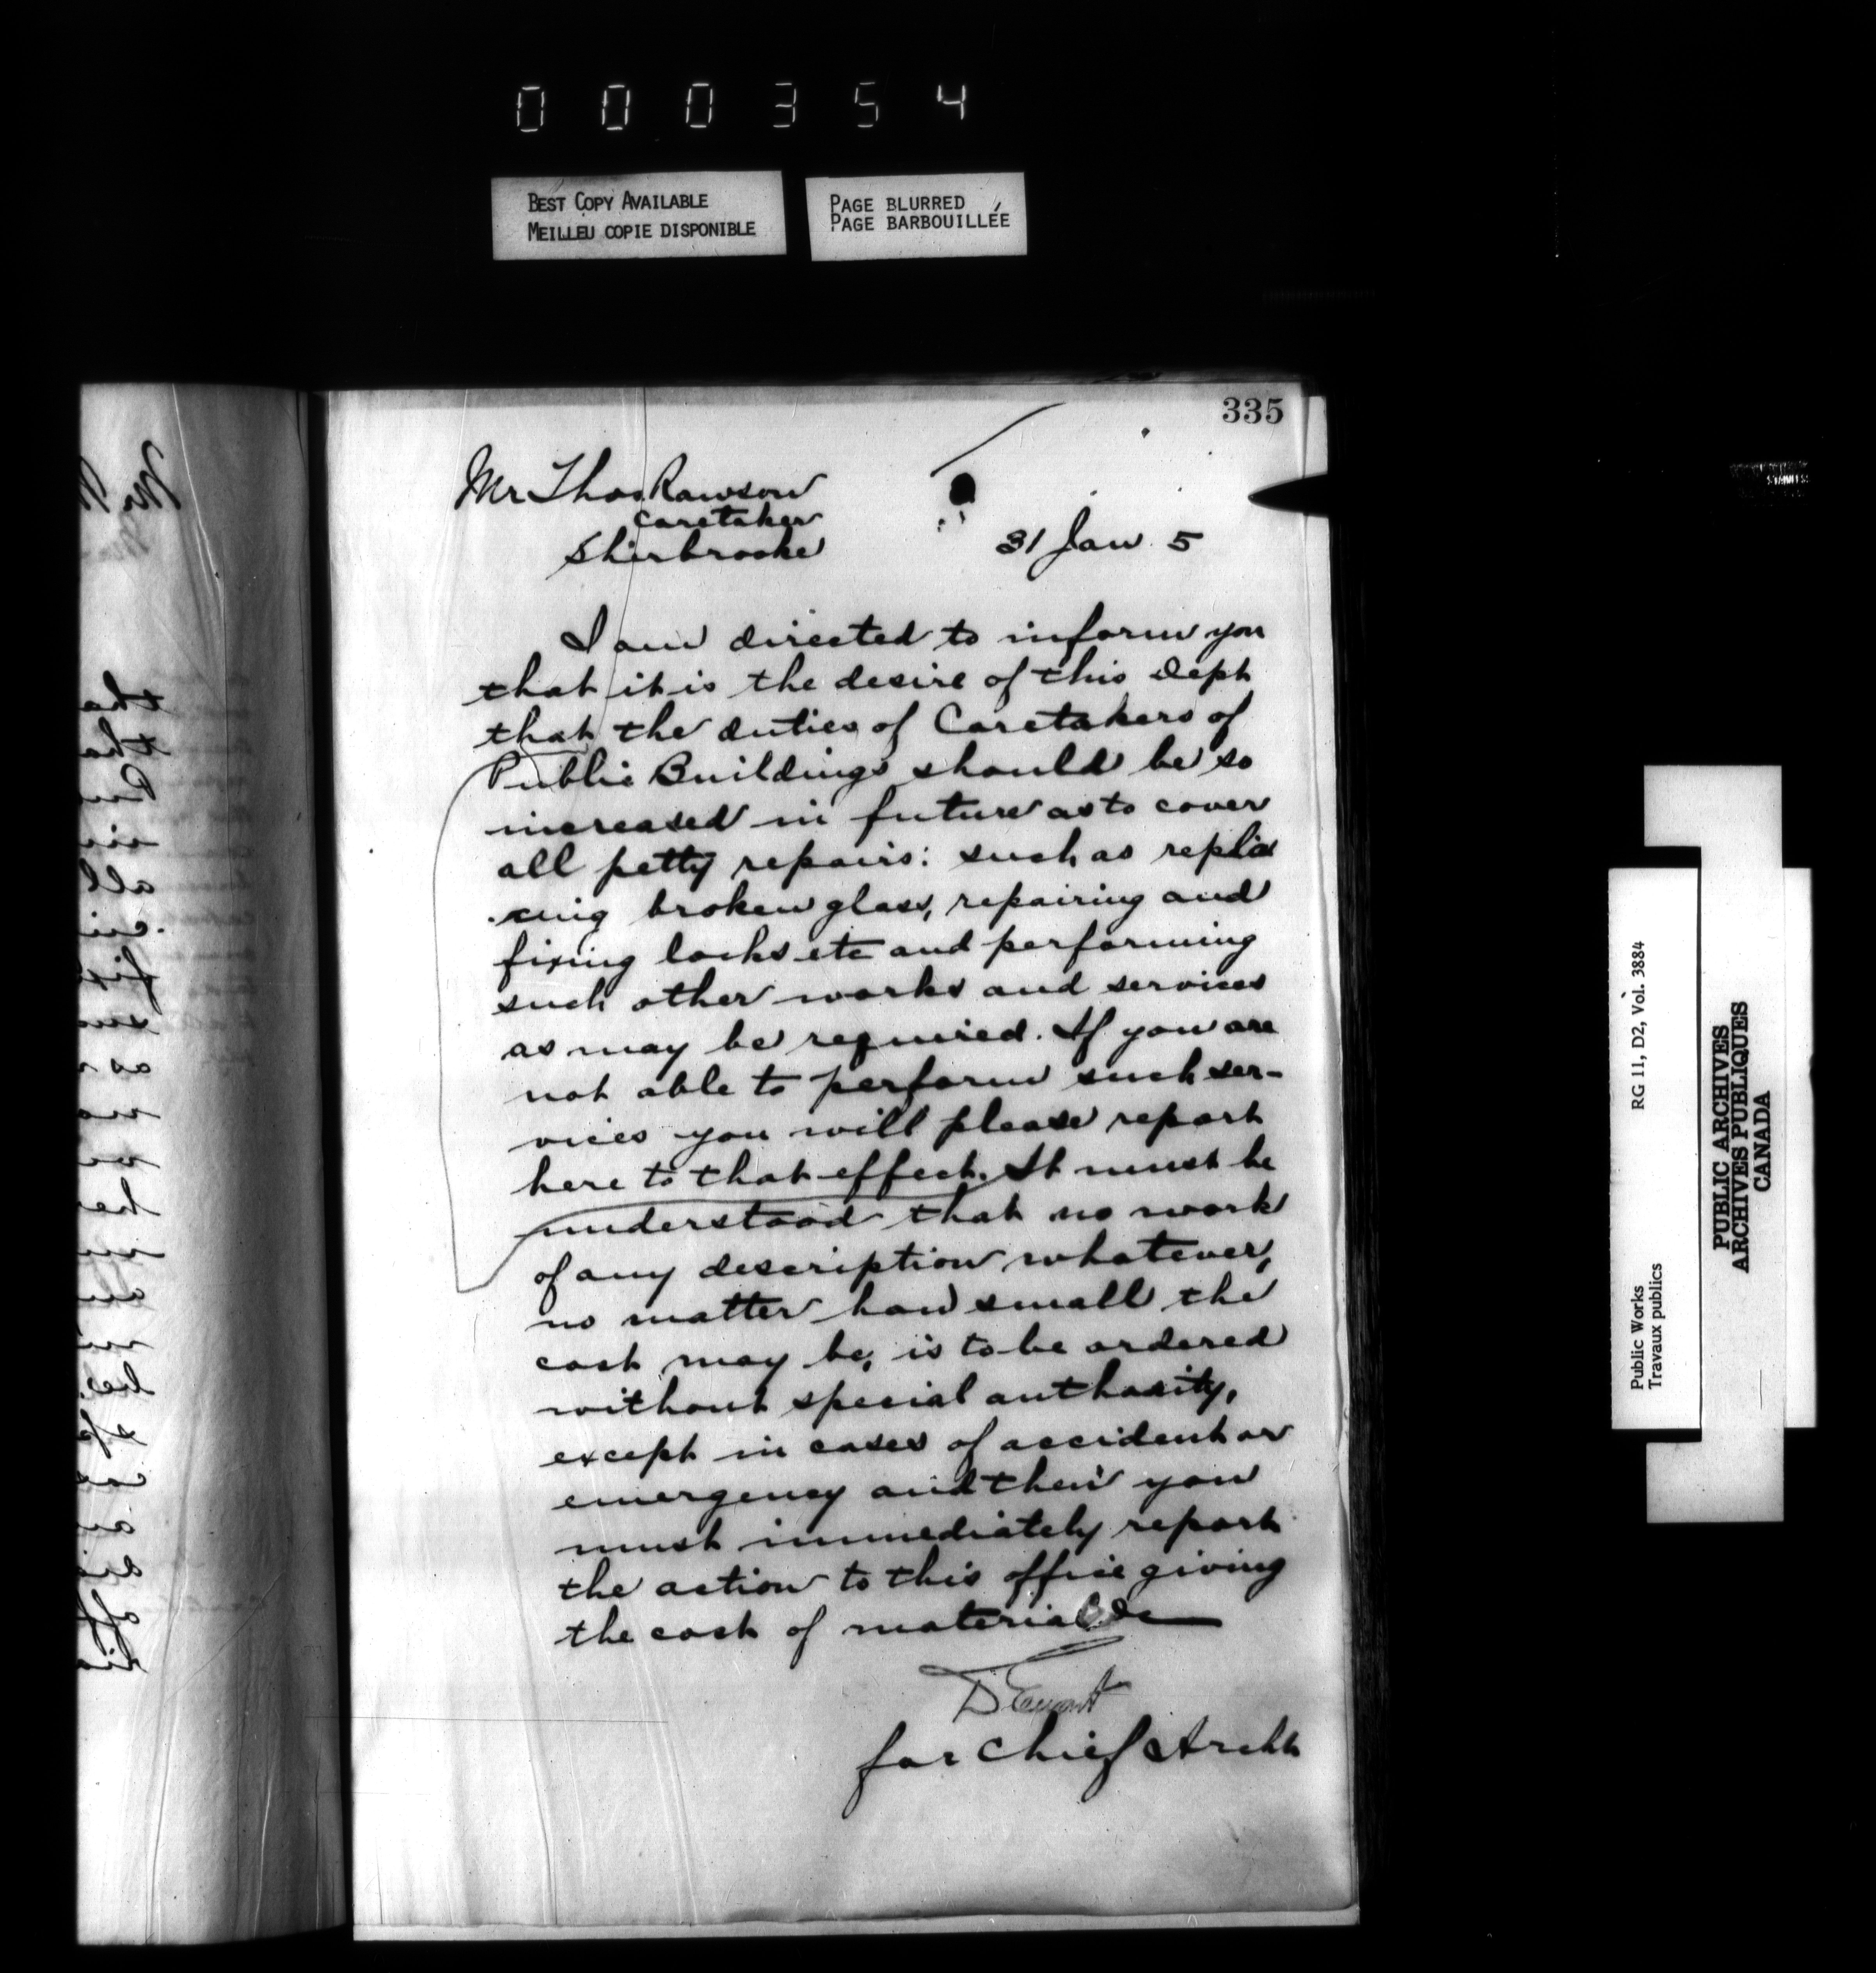 000354
BEST COPY AVAILABLE
MEILLEU COPIE DISPONIBLE
PAGE BLURRED
PAGE BARBOUILLÉE
335
Mr Thos Rawson
Caretaker
Sherbrooke
31 Jan 5
I am directed to inform you
that it is the desire of this Dept
that the duties of Caretakers of
Public Buildings should be so
increased in future as to cover
all petty repairs: such as repla
cing broken glass, repairing and
fixing locks etc and performing
such other works and services
as may be required. If you are
not able to perform such ser-
vices you will please report
here to that effect. It must be
understood that no work
of any description whatever,
no matter how small the
cost may be, is to be ordered
without special authority,
except in cases of accident or
emergency and then you
must immediately report
the action to this office giving
the cost of material &c
D Ewart
for Chief Archt
Public Works
Travaux publics
RG 11, D2, Vol. 3884
PUBLIC ARCHIVES
ARCHIVES PUBLIQUES
CANADA